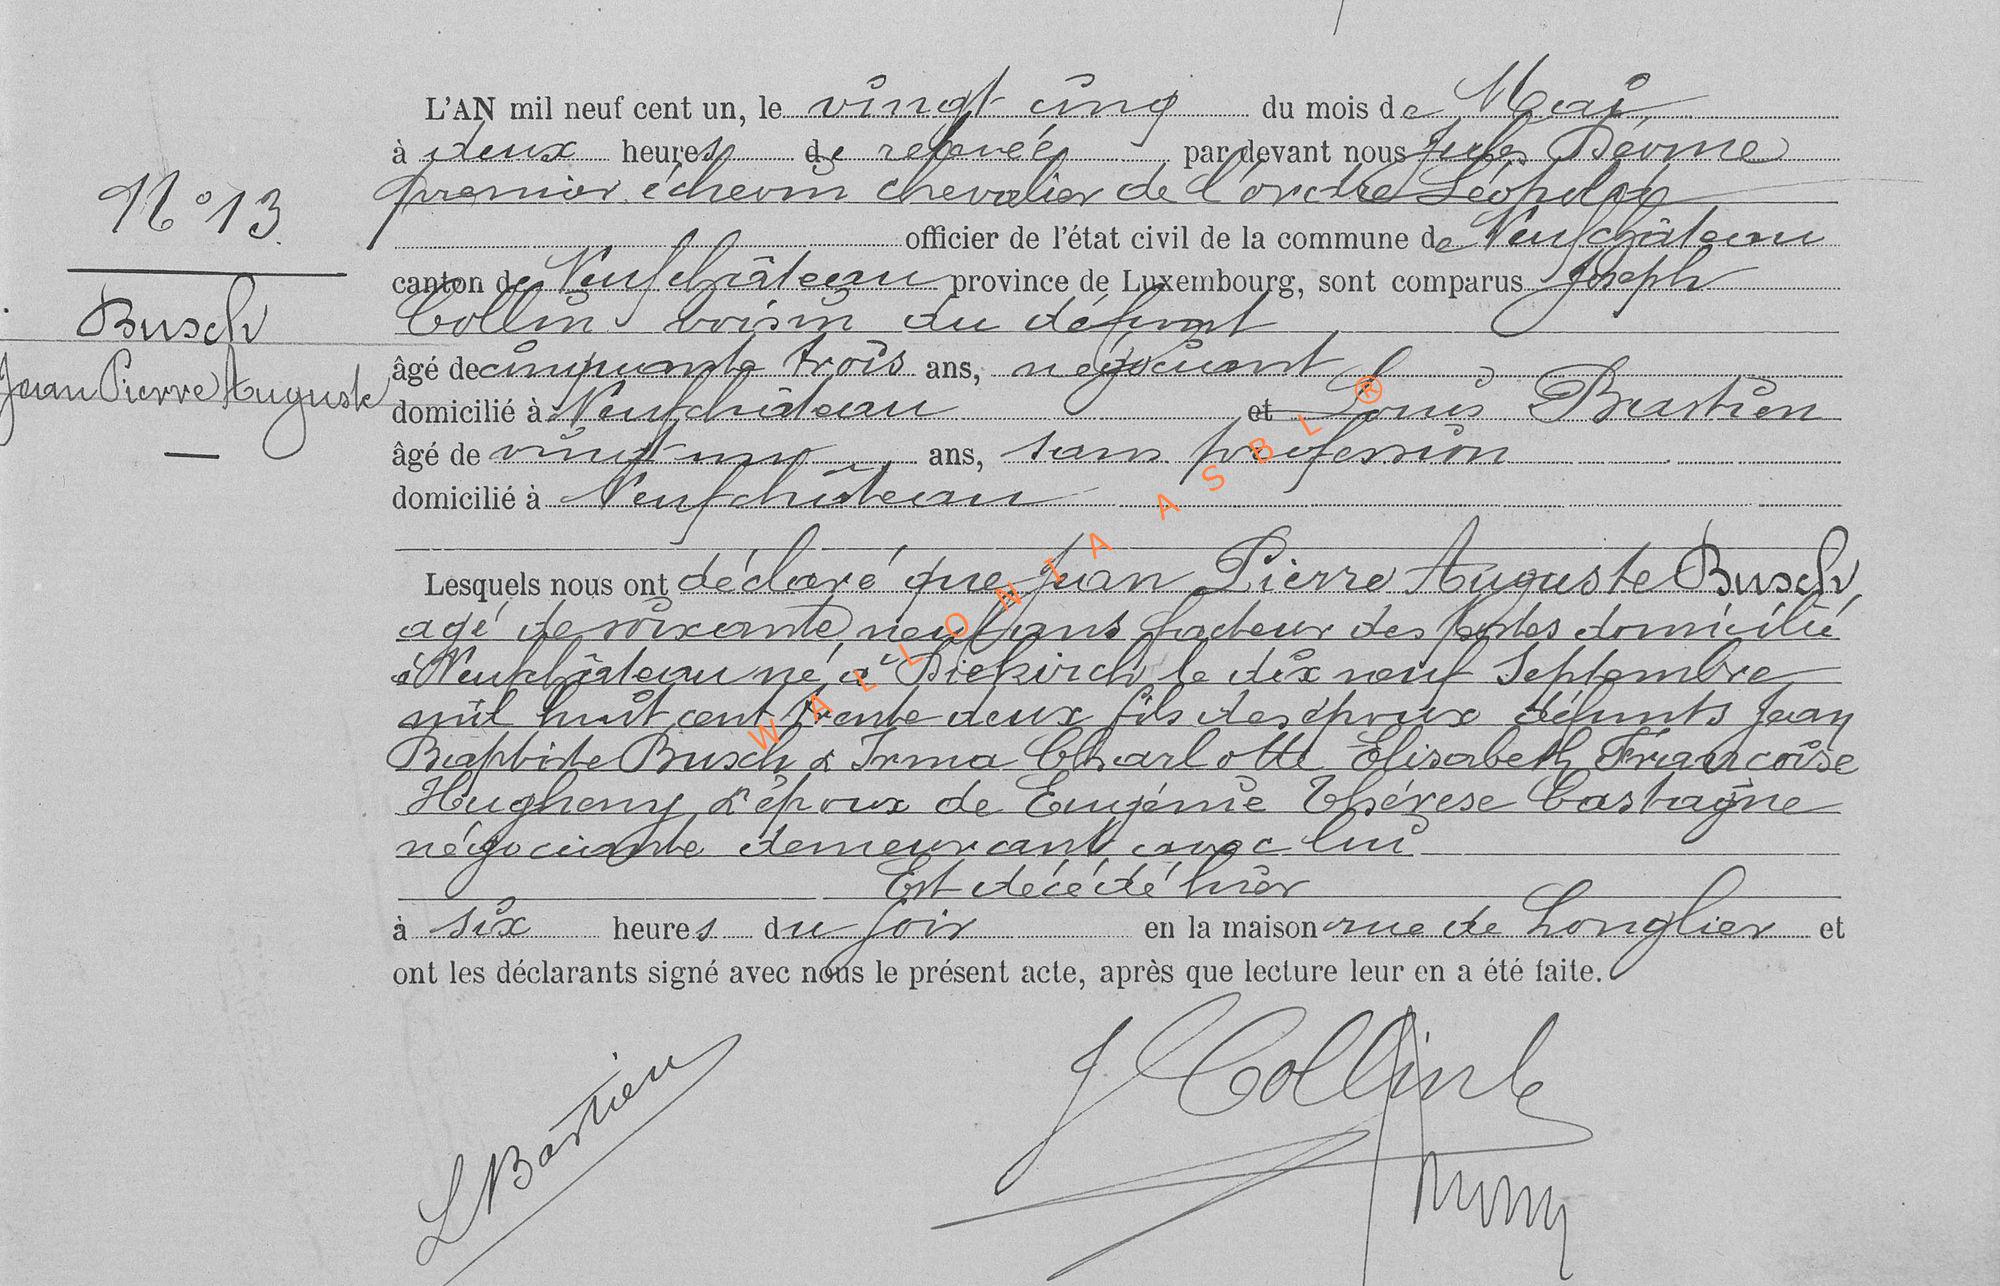 N° 13
Busch
Jean Pierre Auguste
L'AN mil neuf cent un, le vingt cinq du mois de Mai
à deux heures de relevée par devant nous Jules
premier échevin chevalier de l'ordre Léopold
officier de l'état civil de la commune de Neufchâteau
canton de Neufchâteau province de Luxembourg, sont comparus Joseph
Collin voisin du défunt
âgé de cinquante trois ans, négociant
domicilié à Neufchâteau et Louis Bastien
âgé de vingt un ans, sans profession
domicilié à Neufchâteau
Lesquels nous ont déclaré que Jean Pierre Auguste Busch
agé de soixante neuf ans facteur des postes domicilié
à Neufchâteau né à Diekirch le dix neuf Septembre
mil huit cent trente deux fils des époux défunts Jean
Baptiste Busch & Irma Charlotte Elisabeth Françoise
Hugheny & époux de Eugénie Thérèse Castagne
négociante demeurant avec lui
Est décédé hier
à six heures du soir en la maison rue de Longlier et
ont les déclarants signé avec nous le présent acte, après que lecture leur en a été faite.
L Bastien
J Collin
WALLONIA ASBL ®